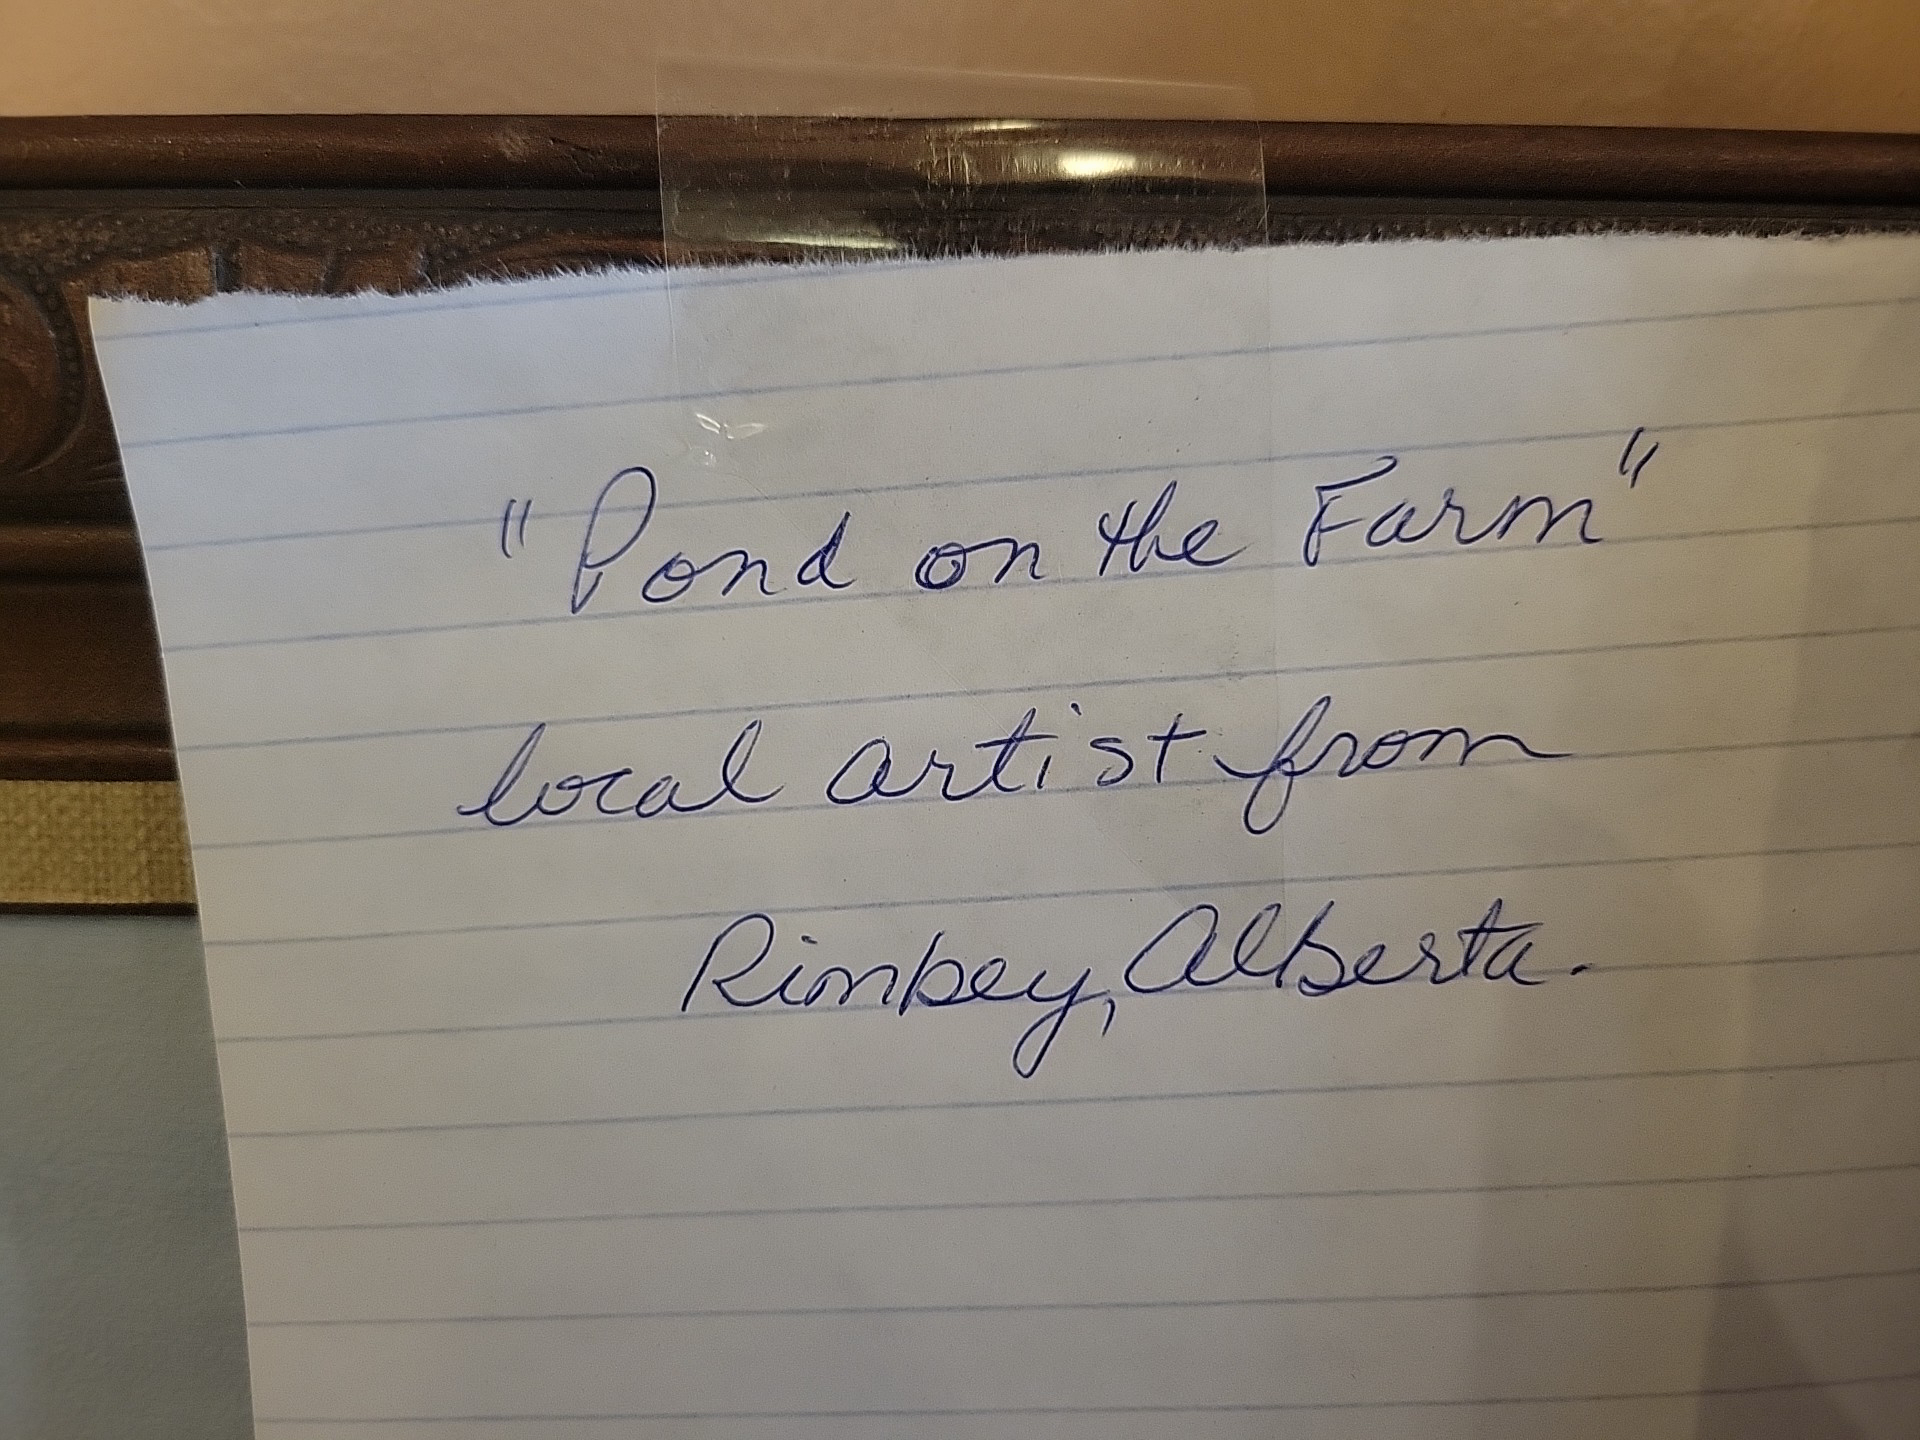 "Pond on the Farm"
local artist from
Rimbey, Alberta.